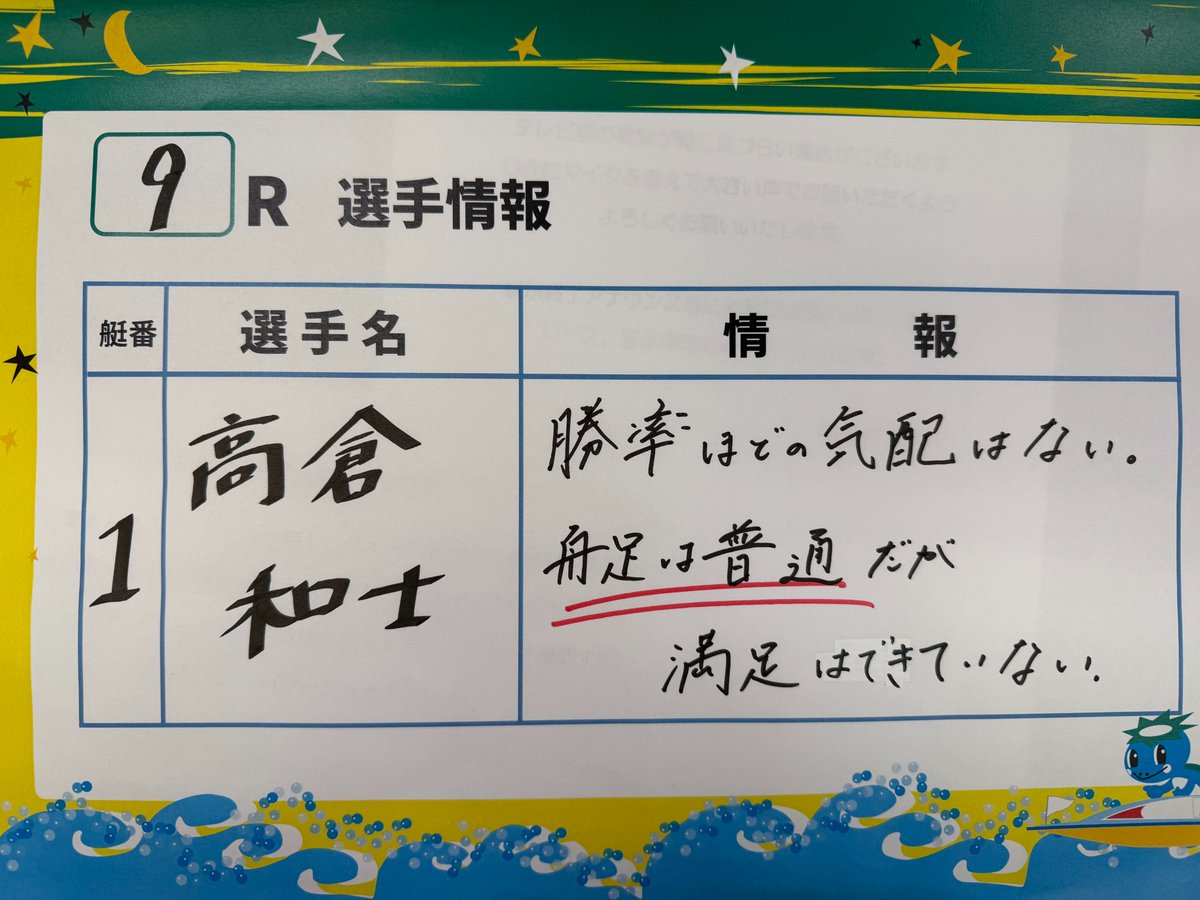 9 R 選手情報
艇番 選手名 情報
1
高倉
和士
勝率ほどの気配はない。
舟足は普通だが
満足はできていない。